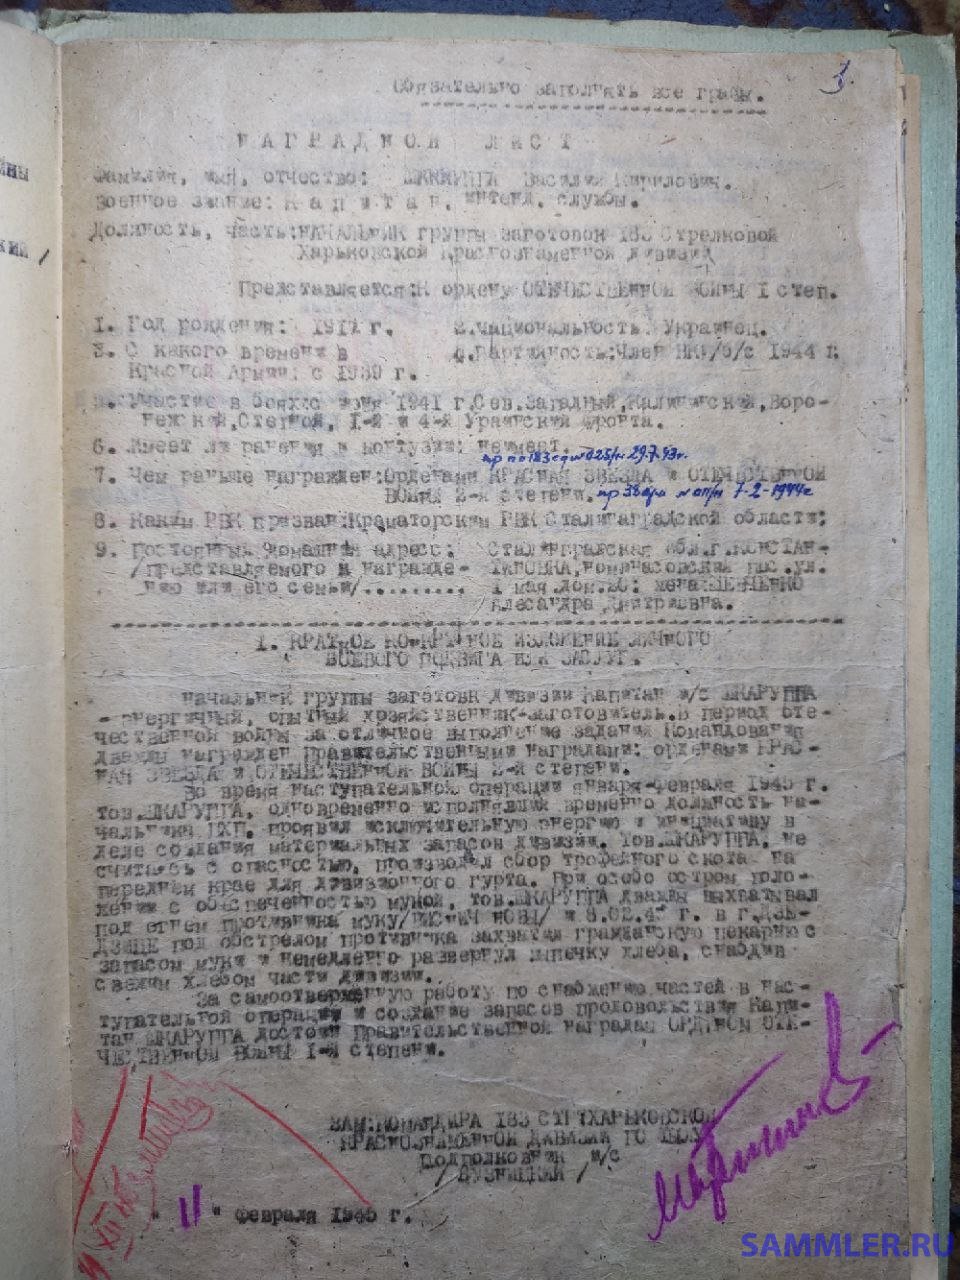 Обязательно заполнять все графы.
НАГРАДНОЙ ЛИСТ
Фамилия, имя, отчество: Василий Кирилович.
Военное звание: Капитан, интенд. службы.
Должность, часть: НАЧАЛЬНИК группы заготовок 183 Стрелковой
Харьковской Краснознаменной дивизии
Представляется: К ордену ОТЕЧЕСТВЕННОЙ ВОЙНЫ I степ.
1. Год рождения: 1911 г. 2. Национальность: Украинец.
3. С какого времени в 4. Партийность: Член ВКП/б/с 1944 г.
Красной Армии: с 1939 г.
5. Участие в боях: с июня 1941 г. Сев. Западный, Калининский, Воро-
нежский, Степной, I-й и 4-й Украинский фронта.
6. Имеет ли ранения и контузии: неимеет.
пр по 183 сд № 025/н 29.7.43г.
7. Чем раньше награжден: Орденами КРАСНАЯ ЗВЕЗДА и ОТЕЧЕСТВЕННОЙ
ВОЙНЫ 2-й степени. 7-2-1944г
8. Каким РВК призван: Краматорским РВК Сталинградской области;
9. Постоянный домашний адресс: Сталинградская обл. г. КОНСТАН-
/представляемого к награжде- ТИНОВКА, пос. ул.
нию или его семьи/......... 1 мая дом. 20: жена ШЕВЧЕНКО
Алесандра Дмитриевна.
1. КРАТКОЕ КОНКРЕТНОЕ ИЗЛОЖЕНИЕ ЛИЧНОГО
БОЕВОГО ПОДВИГА ИЛИ ЗАСЛУГ.
Начальник группы заготовк дивизии Капитан и/с ШКАРУППА
- энергичный, опытный хозяйственник-заготовитель. В период оте-
чественной войны за отличное выполнение заданий Командования
дважды награжден Правительственными наградами: орденами КРАС-
НАЯ ЗВЕЗДА и ОТЕЧЕСТВЕННОЙ ВОЙНЫ 2-й степени.
Во время наступательной операции января-февраля 1945 г.
тов. ШКАРУППА, одновременно исполнявший временно должность на-
чальника ПХП, проявил исключительную энергию и инициативу в
деле создания материальных запасов дивизии. Тов. ШКАРУППА, не
считаясь с опасностью, производил сбор трофейного скота на
переднем крае для дивизионного гурта. При особо остром поло-
жении с обеспеченностью мукой, тов. ШКАРУППА дважды выхватывал
под огнем противника муку и 8.02.45 г. в г. ДЗЕ-
ДЗИЦЕ под обстрелом противника захватил гражданскую пекарню с
запасом муки и немедленно развернул выпечку хлеба, снабдив
свежим хлебом части дивизии.
За самоотверженную работу по снабжению частей в нас-
тупательной операции и создание запасов продовольствия Капи-
тан ШКАРУППА достоин Правительственной награды ОРДЕНОМ ОТЕ-
ЧЕСТВЕННОЙ ВОЙНЫ I-й степени.
ЗАМ. КОМАНДИРА 183 СТР. ХАРЬКОВСКОЙ
КРАСНОЗНАМЕННОЙ ДИВИЗИИ ПО ТЫЛУ
подполковник и/с
" 11 " февраля 1945 г.
SAMMLER.RU